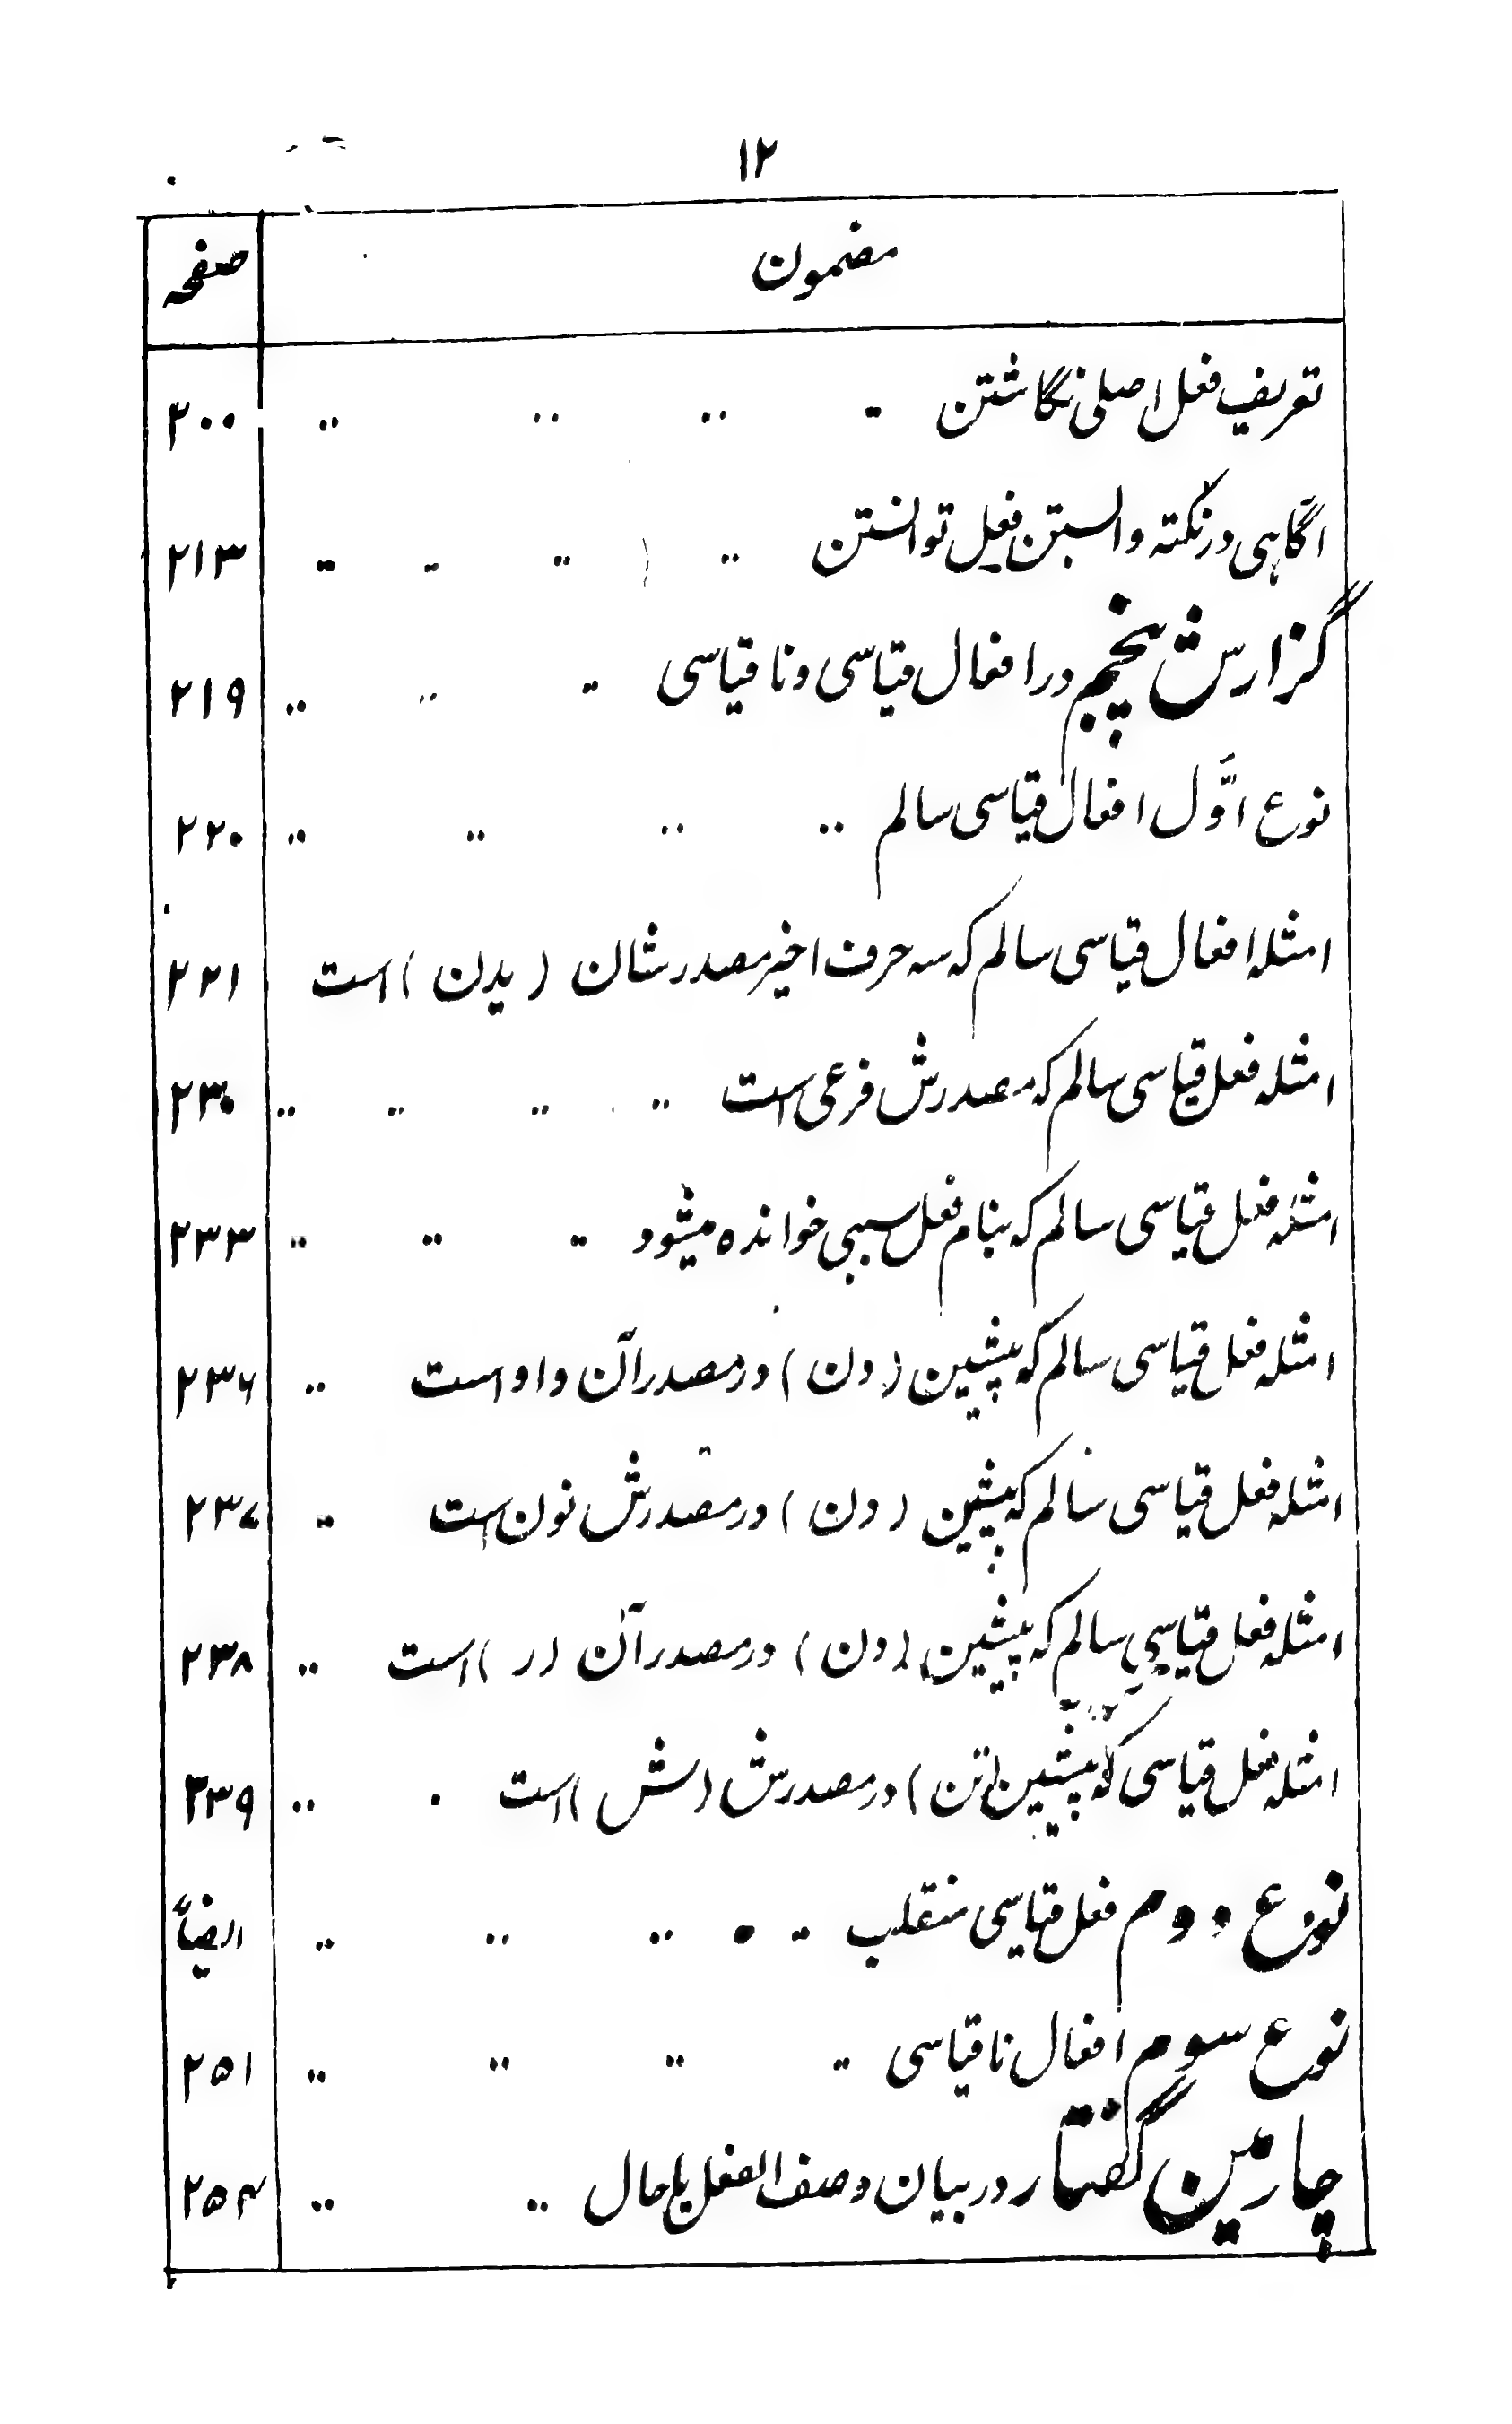 ۱۲
مضمون صفحه
تعریف فعل اصلی نگاشتن ۲۰۰
آگاهی در نکته وابستن فعل توانستن ۲۱۳
گزارش پنجم در افعال قیاسی و نا قیاسی ۲۱۹
نوع اوّل افعال قیاسی سالم ۲۲۰
امثله افعال قیاسی سالم که سه حرف اخیر مصدرشان (یدن) است ۲۲۱
امثله فعل قیاسی سالم که مصدرش فرعی است ۲۳۰
امثله فعل قیاسی سالم که بنام فعل سببی خوانده میشود ۲۳۳
امثله فعل قیاسی سالم که پیشین (دن) در مصدر آن واو است ۲۳۶
امثله فعل قیاسی سالم که پیشین (دن) در مصدرش نون است ۲۳۷
امثله فعل قیاسی سالم که پیشین (دن) در مصدر آن (ر) است ۲۳۸
امثله فعل قیاسی که پیشین (تن) در مصدرش (ش) است ۲۳۹
نوع دوم فعل قیاسی منقلب ایضاً
نوع سوم افعال نا قیاسی ۲۵۱
چارمین گفتار در بیان وصف الفعل یا حال ۲۵۴